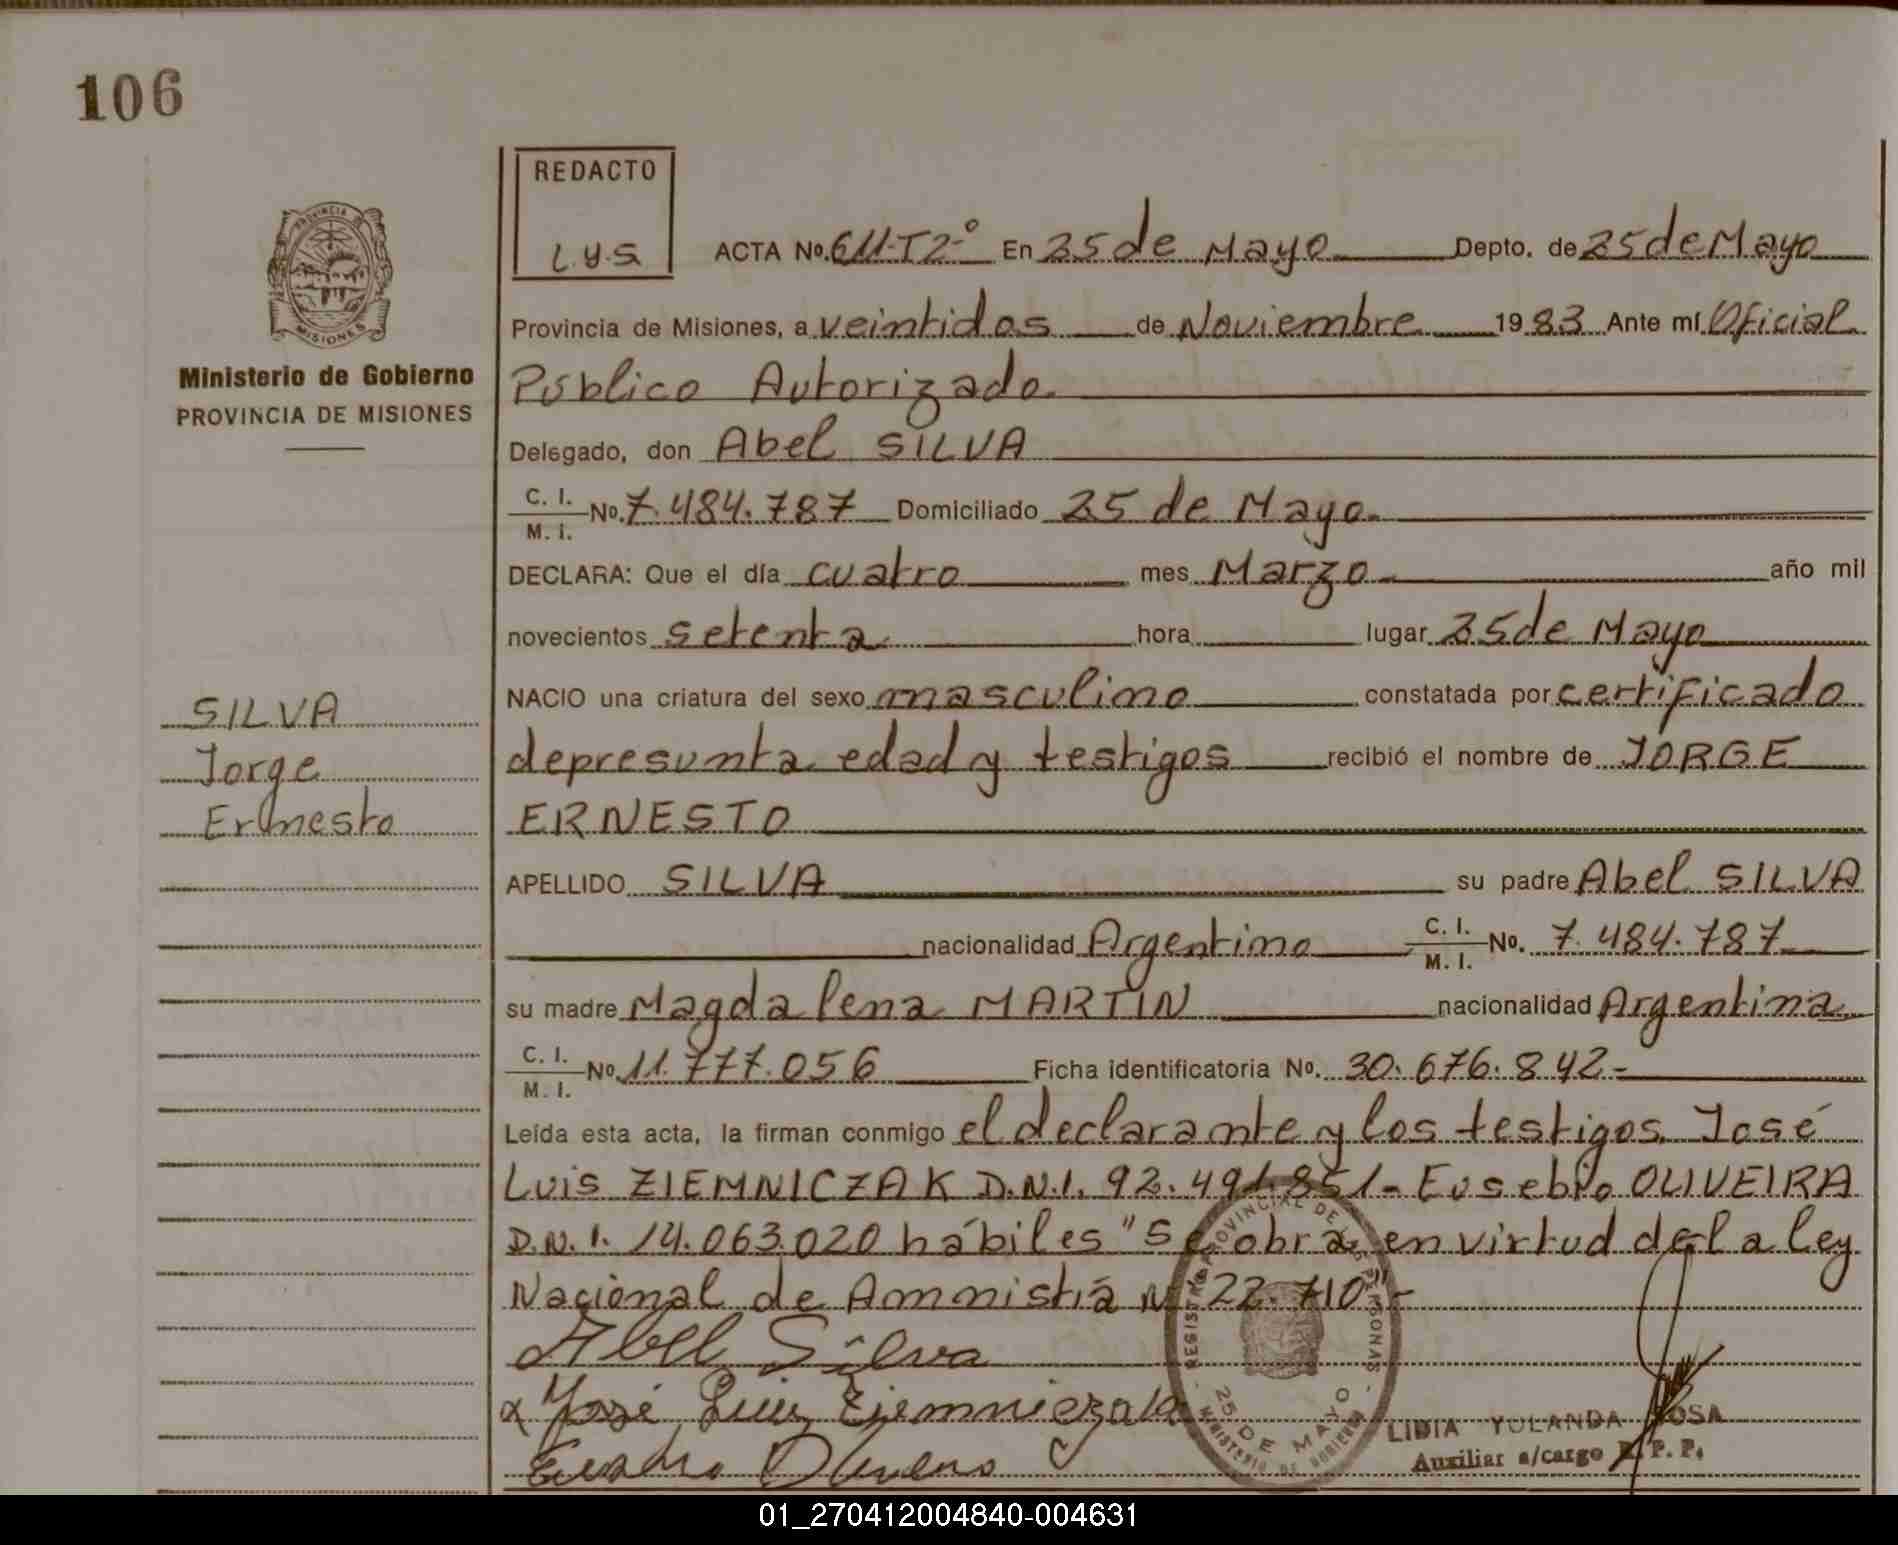 106
REDACTO
L.Y.S.
PROVINCIA DE
MISIONES
Ministerio de Gobierno
PROVINCIA DE MISIONES
ACTA No. 611-T2-º En 25 de Mayo Depto. de 25 de Mayo
Provincia de Misiones, a veintidos de Noviembre 1983 Ante mí Oficial
Público Autorizado.
Delegado, don Abel SILVA
C. I. / M. I. No. 7.484.787 Domiciliado 25 de Mayo.-
DECLARA: Que el día cuatro mes Marzo.- año mil
novecientos setenta hora lugar 25 de Mayo
NACIO una criatura del sexo masculino constatada por certificado
de presunta edad y testigos recibió el nombre de JORGE
ERNESTO
APELLIDO SILVA su padre Abel SILVA
nacionalidad Argentino C. I. / M. I. No. 7.484.787
su madre Magdalena MARTIN nacionalidad Argentina
C. I. / M. I. No. 11.777.056 Ficha identificatoria No. 30.676.842-
Leída esta acta, la firman conmigo el declarante y los testigos José
Luis ZIEMNICZAK D.N.I. 92.491.851- Eusebio OLIVEIRA
D.N.I. 14.063.020 hábiles "Se obra en virtud de la ley
Nacional de Amnistía Nº 22.710"-
Abel Silva
José Luis Ziemniczak
SILVA
Jorge
Ernesto
REGISTRO PROVINCIAL DE LAS PERSONAS
25 DE MAYO
MINISTERIO DE GOBIERNO
LIDIA YOLANDA SOSA
Auxiliar a/cargo R. P. P.
01_270412004840-004631